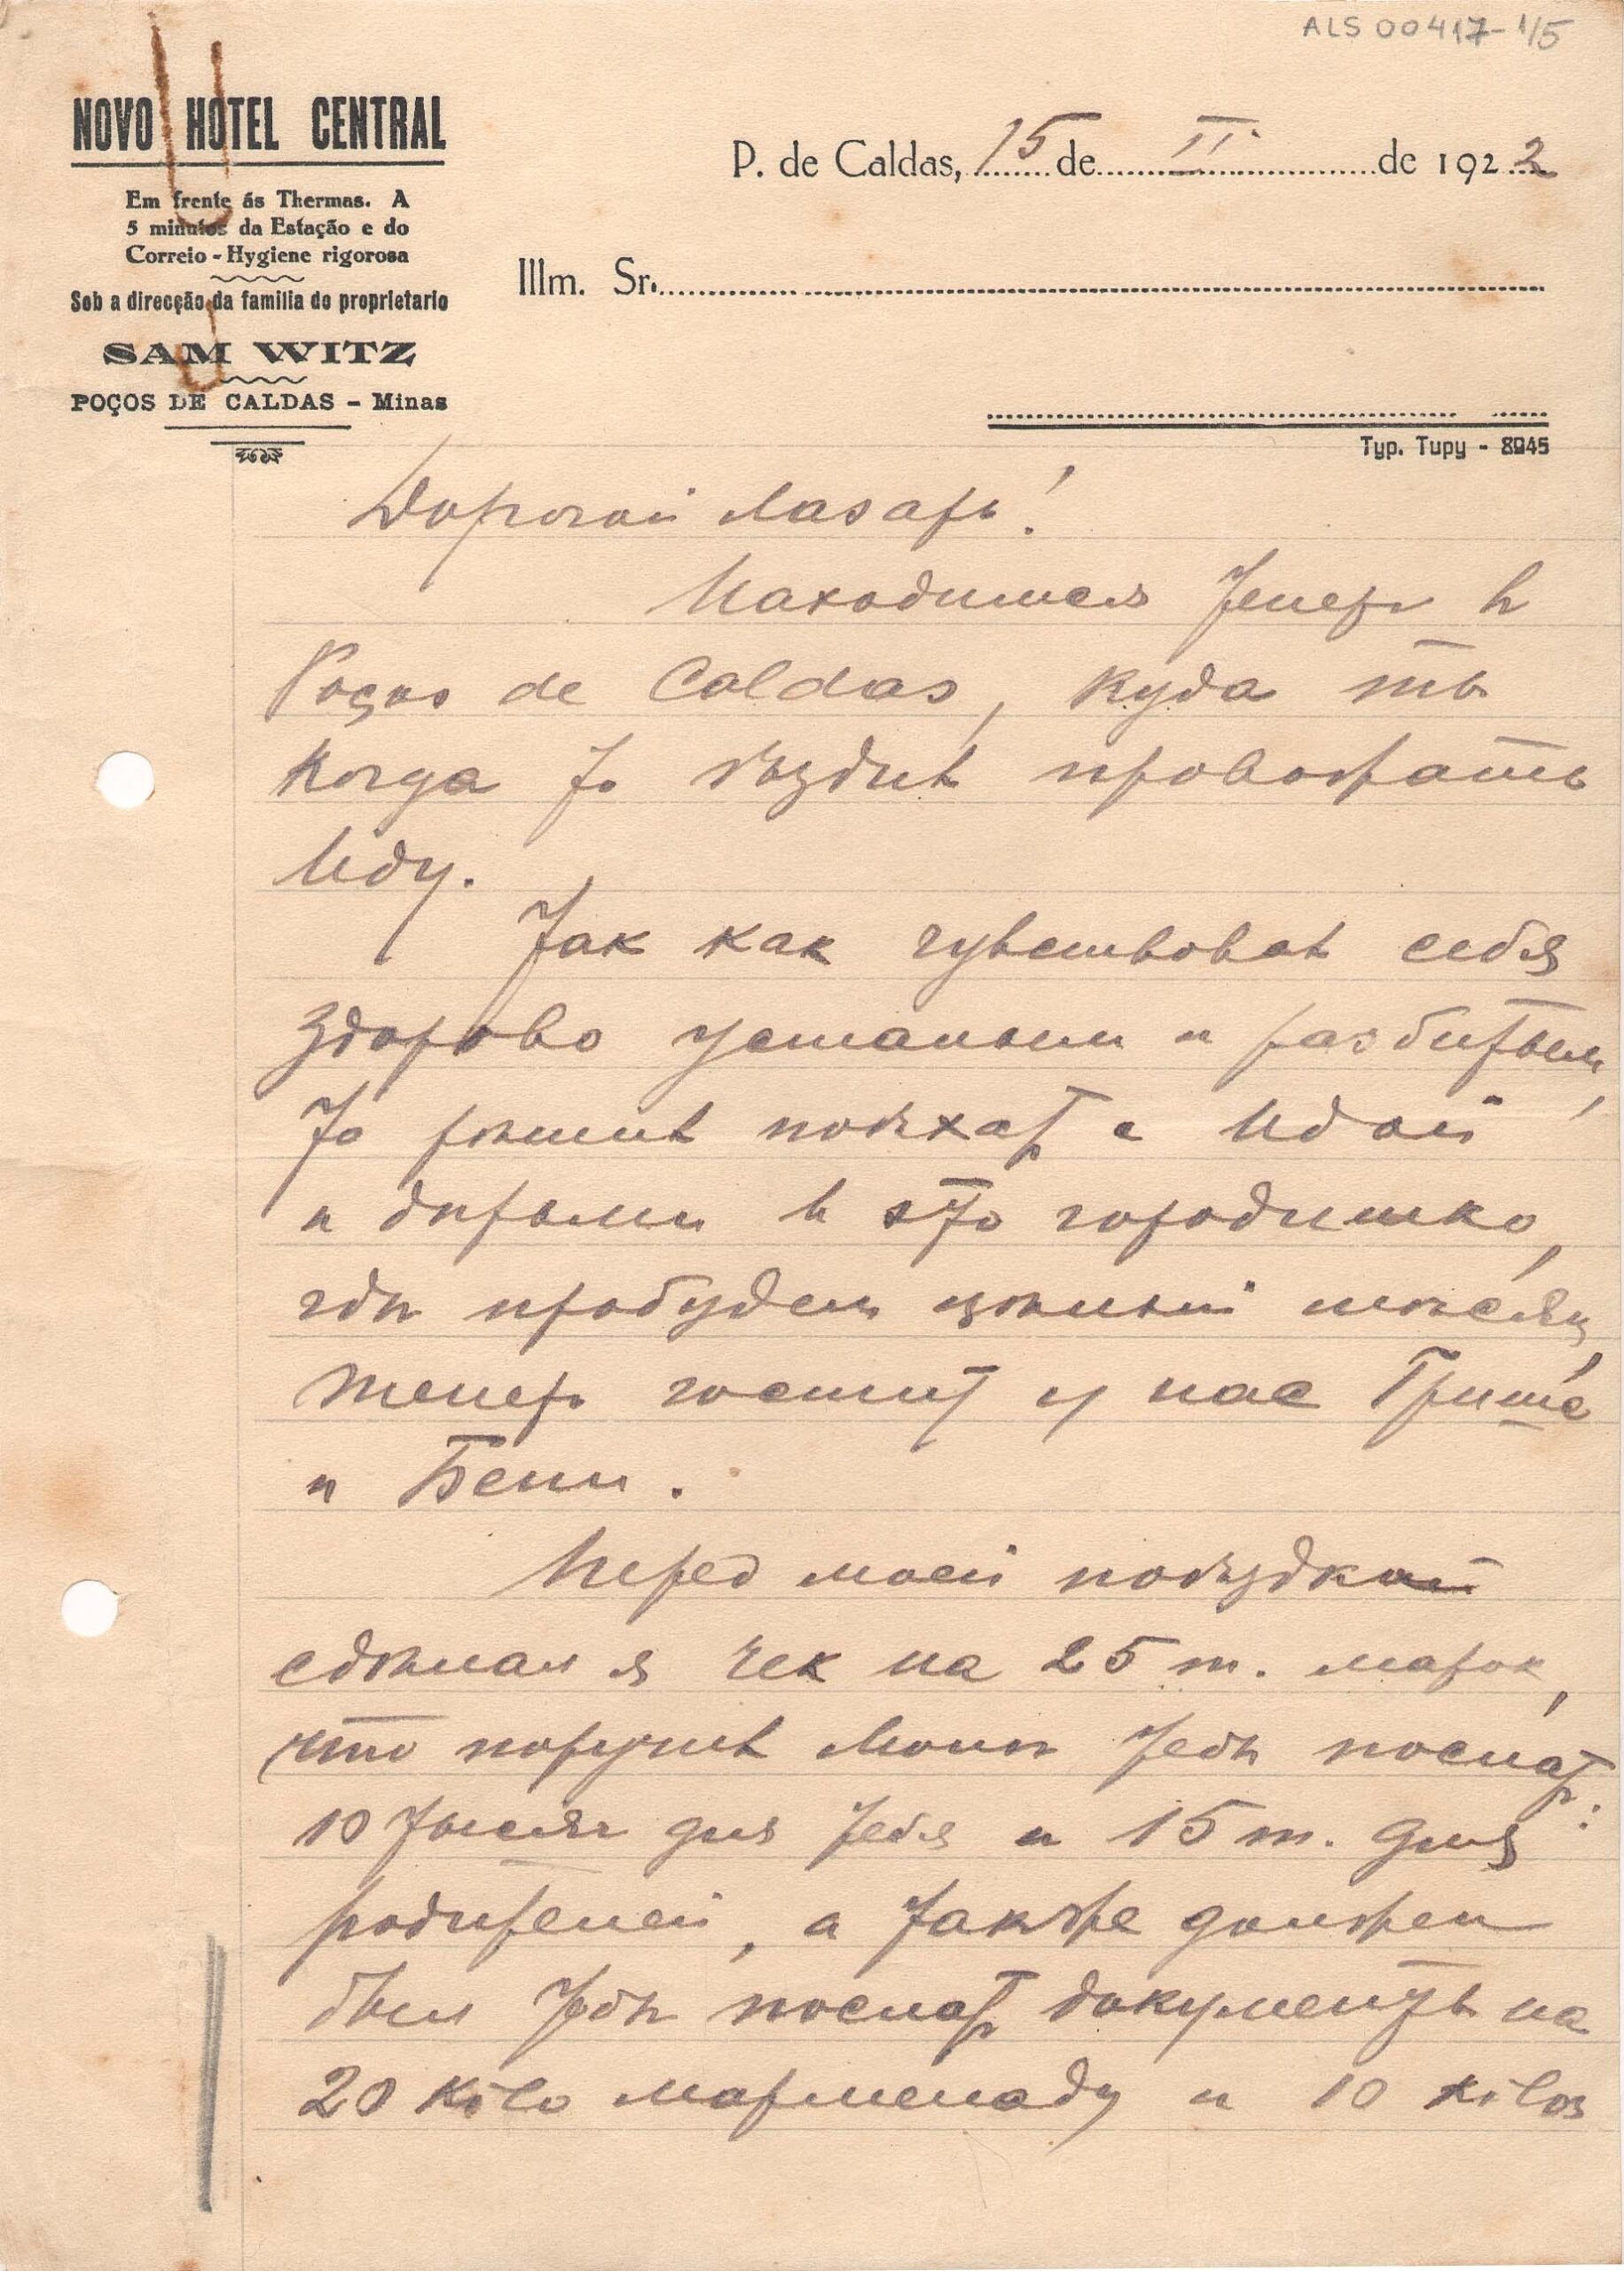 ALS 00417-1/5
NOVO HOTEL CENTRAL
Em frente ás Thermas. A
5 minutos da Estação e do
Correio - Hygiene rigorosa
Sob a direcção da familia do proprietario
SAM WITZ
POÇOS DE CALDAS - Minas
P. de Caldas, 15 de II de 1922
Illm. Sr.
Typ. Tupy - 8945
Дорогой Лазарь!
Находимся теперь в
Poços de Caldas, куда ты
когда то ѣздил провожать
Иду.
Так как чувствовал себя
здорово усталым и разбитым,
то рѣшил поѣхать с Идой
и дѣтьми в это городишко,
гдѣ пробудем цѣлый мѣсяц,
теперь гостит у нас Гриша
и Бени.
Перед моей поѣздкой
сдѣлал я чек на 25 т. марок,
что поручил Мони тебѣ послать:
10 тысяч для тебя и 15 т. для
родителей, а также должен
был тебѣ послать документы на
20 kilo мармеладу и 10 kilos